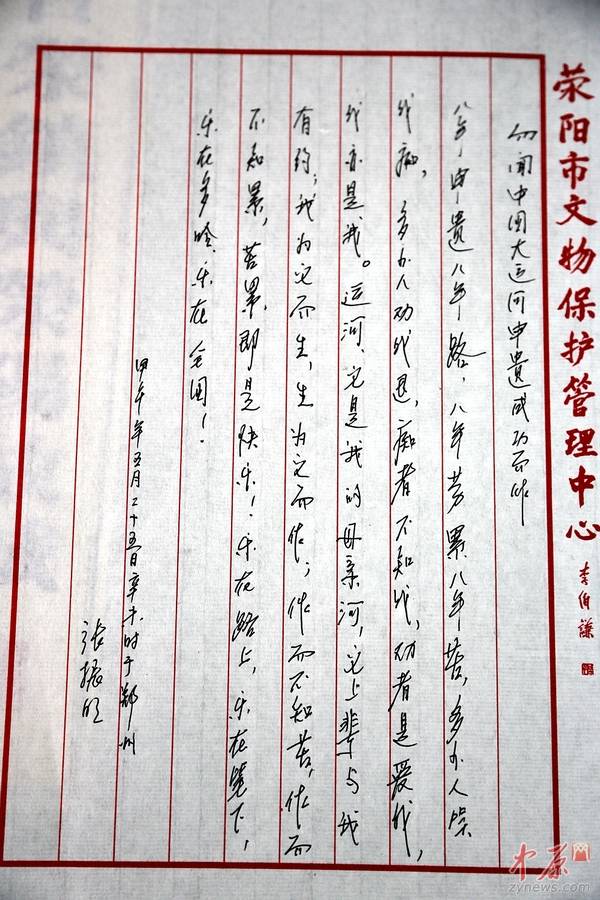 荥阳市文物保护管理中心
李伯谦
闻中国大运河申遗成功而作
八年申遗八年路，八年劳累八年苦，多少人嘆
我痴，多少人劝我退，痴者不知我，劝者是爱我，
我亦是我。运河，它是我的母亲河，它上辈与我
有约；我为它而生，生为它而作；作而不知苦，作而
不知累，苦累即是快乐！乐在路上，乐在笔下，
乐在多吟，乐在全圆！
甲午年五月二十五日辛未时于郑州
张振明
中原网
zynews.com